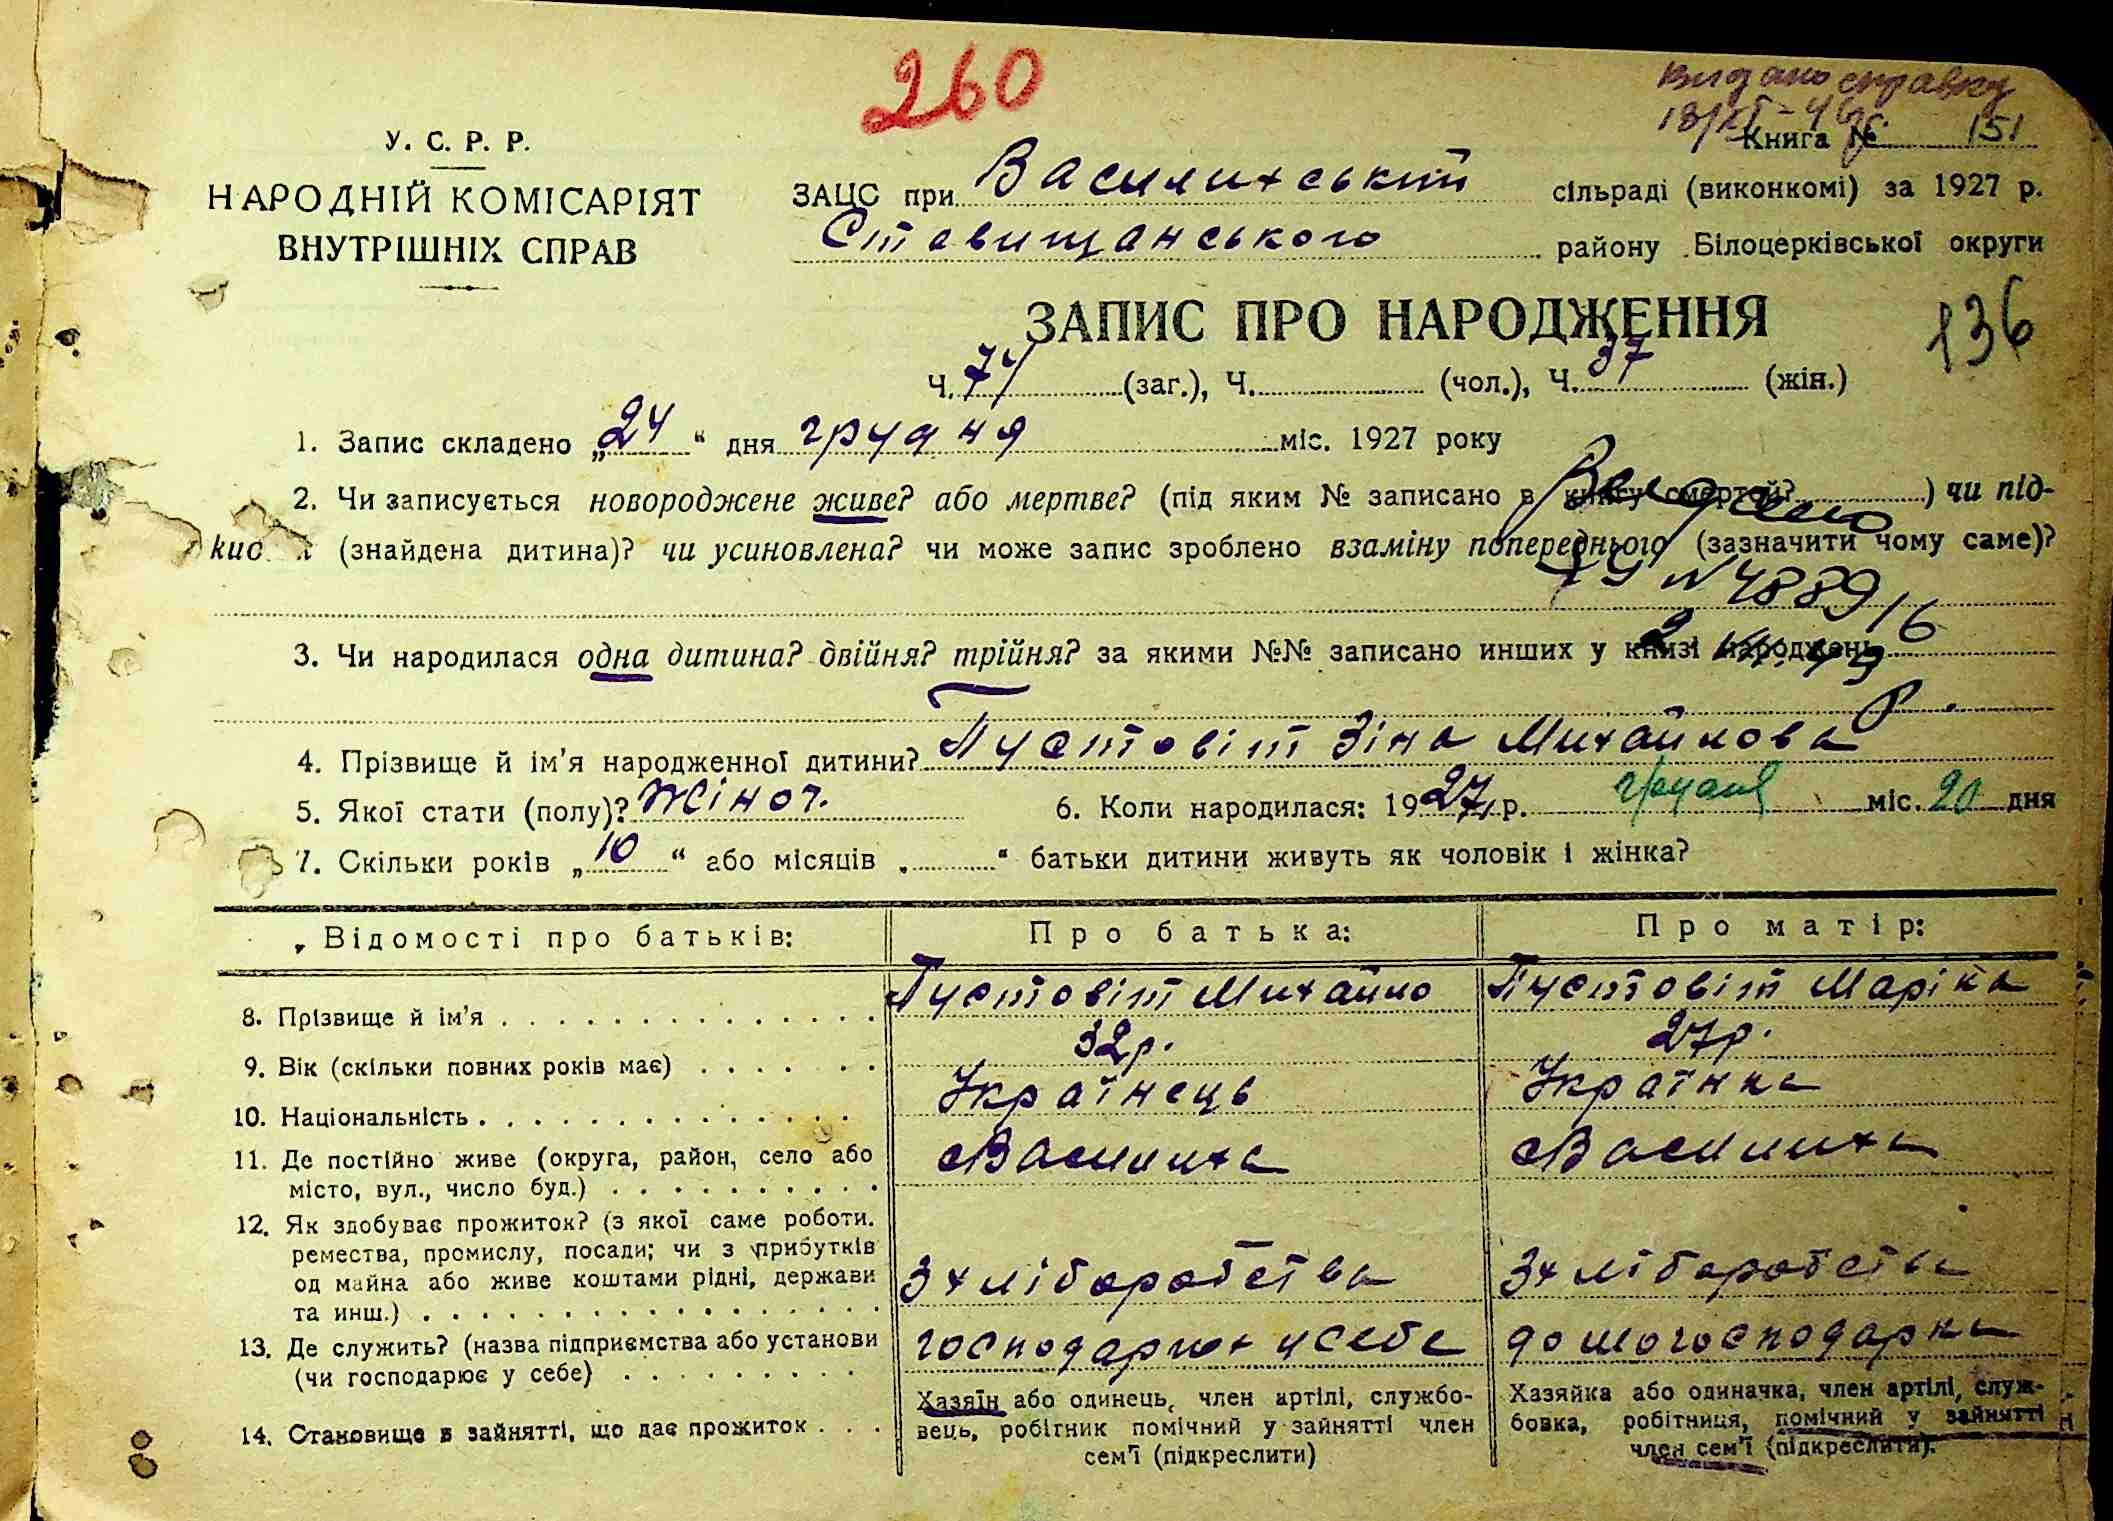 260
Видано справку
18/XI-46р.
У. С. Р. Р.
НАРОДНІЙ КОМІСАРІЯТ
ВНУТРІШНІХ СПРАВ
Книга № 151
ЗАЦС при Василихській сільраді (виконкомі) за 1927 р.
Ставищанського району Білоцерківської округи
ЗАПИС ПРО НАРОДЖЕННЯ
136
Ч. 74 (заг.), Ч. (чол.), Ч. 37 (жін.)
1. Запис складено „24“ дня грудня міс. 1927 року
2. Чи записується новороджене живе? або мертве? (під яким № записано в книгу смертей? ) чи під-
кид (знайдена дитина)? чи усиновлена? чи може запис зроблено взаміну попереднього (зазначити чому саме)?
Видано
№ 4889
3. Чи народилася одна дитина? двійня? трійня? за якими №№ записано инших у книзі народжень
4. Прізвище й ім'я народженної дитини? Пустовіт Зіна Михайлова
5. Якої стати (полу)? Жіноч. 6. Коли народилася: 1927 р. грудня міс. 20 дня
7. Скільки років „10“ або місяців „ “ батьки дитини живуть як чоловік і жінка?
Відомості про батьків: Про батька: Про матір:
8. Прізвище й ім'я Пустовіт Михайло Пустовіт Маріка
9. Вік (скільки повних років має) 32р. 27р.
10. Національність Українець Українка
11. Де постійно живе (округа, район, село або
місто, вул., число буд.) Василиха Василиха
12. Як здобуває прожиток? (з якої саме роботи.
ремества, промислу, посади; чи з прибутків
од майна або живе коштами рідні, держави
та инш.) З хліборобства З хліборобства
13. Де служить? (назва підприємства або установи
(чи господарює у себе) господарює у себе домогосподарка
14. Становище в зайнятті, що дає прожиток
Хазяїн або одинець, член артілі, службо-
вець, робітник помічний у зайнятті член
сем'ї (підкреслити)
Хазяйка або одиначка, член артілі, служ-
бовка, робітниця, помічний у зайнятті
член сем'ї (підкреслити).